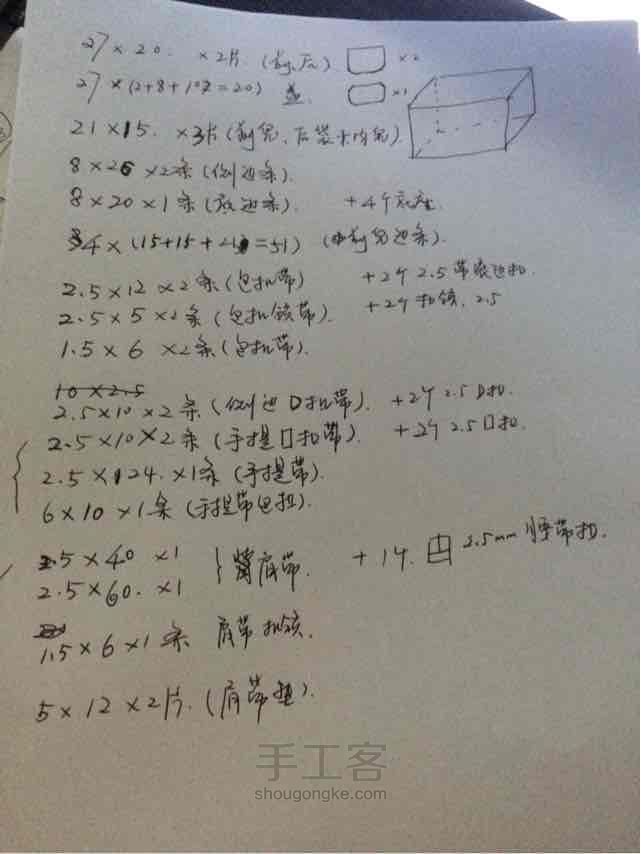 27×20. ×2片(前.后) ×2
27×(2+8+10=20) 盖. ×1
21×15. ×3片(前兜、后袋+内兜)
8×26×2条(侧边条).
8×20×1条(底边条). +4个底座
4×(15+15+21=51) (前兜边条).
2.5×12×2条(包扣带) +2个2.5带
2.5×5×2条(包扣锁带). +2个扣锁. 2.5
1.5×6×2条(包扣带).
10×2.5
2.5×10×2条(侧边D扣带). +2个2.5D扣.
2.5×10×2条(手提口扣带). +2个2.5口扣.
2.5×124.×1条(手提带).
6×10×1条(手提带包扣).
2.5×40×1
2.5×60.×1 肩带. +1个. 2.5mm 带扣.
1.5×6×1条 肩带扣锁.
5×12×2片.(肩带垫).
手工客
shougongke.com